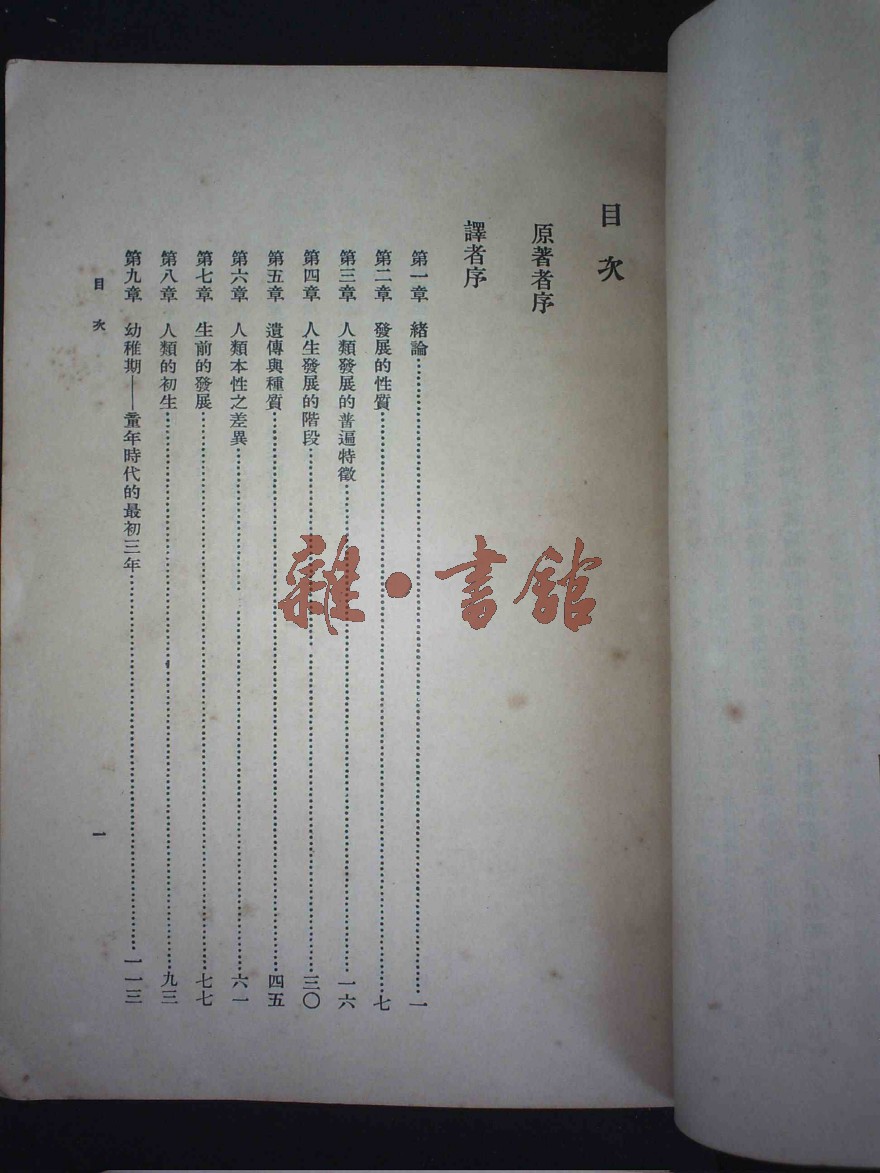 目次
原著者序
譯者序
第一章 緒論……一
第二章 發展的性質……七
第三章 人類發展的普遍特徵……一六
第四章 人生發展的階段……三〇
第五章 遺傳與種質……四五
第六章 人類本性之差異……六一
第七章 生前的發展……七七
第八章 人類的初生……九三
第九章 幼稚期——童年時代的最初三年……一一三
目次 一
雜·書館